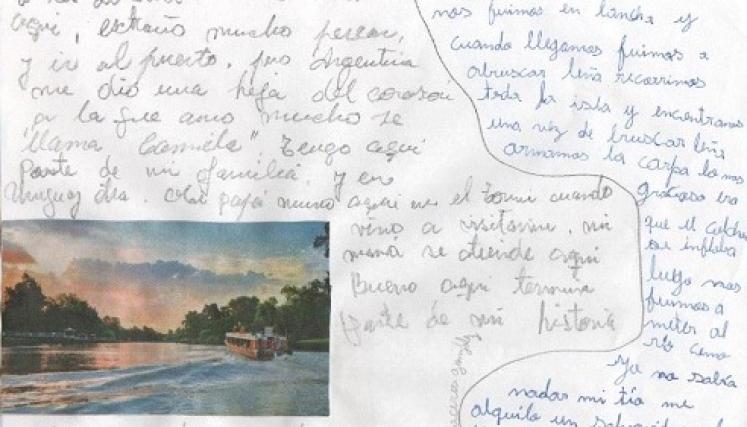 aquí, extraño mucho pescar,
y ir al puerto, pero Argentina
me dio una hija del corazon
a la que amo mucho se
"llama Camiela". Tengo aqui
parte de mi familia y en
Uruguay otra. Mi papá murio aqui en el cuando
vino a visitarme, mi
mamá se atiende aqui
Bueno aqui termina
parte de mi historia
nos fuimos en lancha y
cuando llegamos fuimos a
abuscar leña recorrimos
toda la isla y encontramos
una vez de bruscar leña
armamos la carpa lo mas
gracioso era
que el colchon
se inflaba
luego nos
fuimos a
meter al
río como
yo no sabía
nadar mi tía me
alquilo un